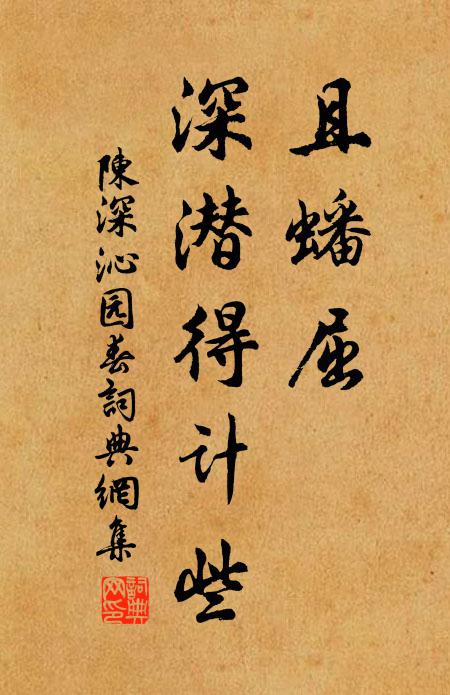 且蟠屈
深潜得计些
陳深沁园春詞典網集
詞典网印